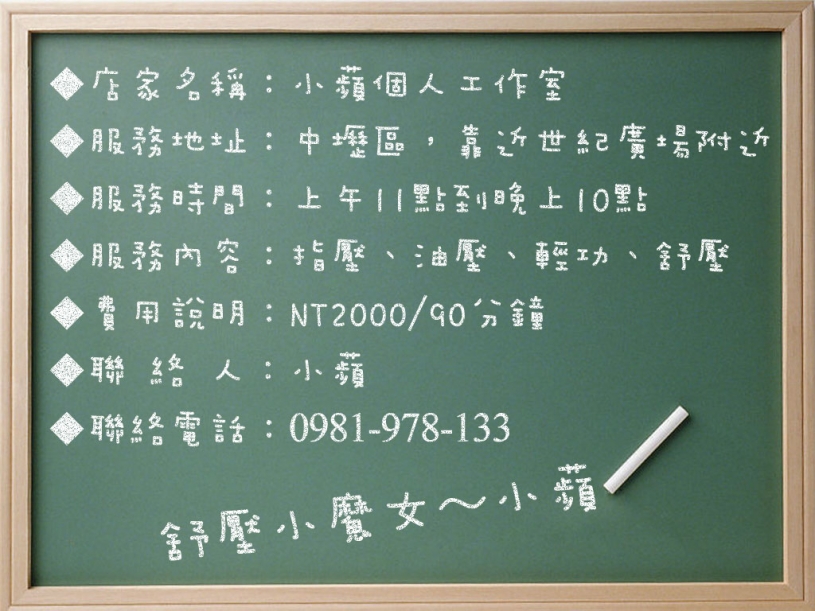 ◆店家名稱：小蘋個人工作室
◆服務地址：中壢區，靠近世紀廣場附近
◆服務時間：上午11點到晚上10點
◆服務內容：指壓、油壓、輕功、舒壓
◆費用說明：NT2000/90分鐘
◆聯絡人：小蘋
◆聯絡電話：0981-978-133
舒壓小魔女～小蘋